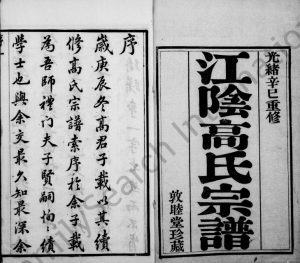 光緒辛巳重修
江陰高氏宗譜
敦睦堂珍藏
序
歲庚辰冬高君子載以其續
修高氏宗譜索序於余子載
為吾師禮門夫子賢嗣恂〻績
學士也與余交最久知最深余
FamilySearch International